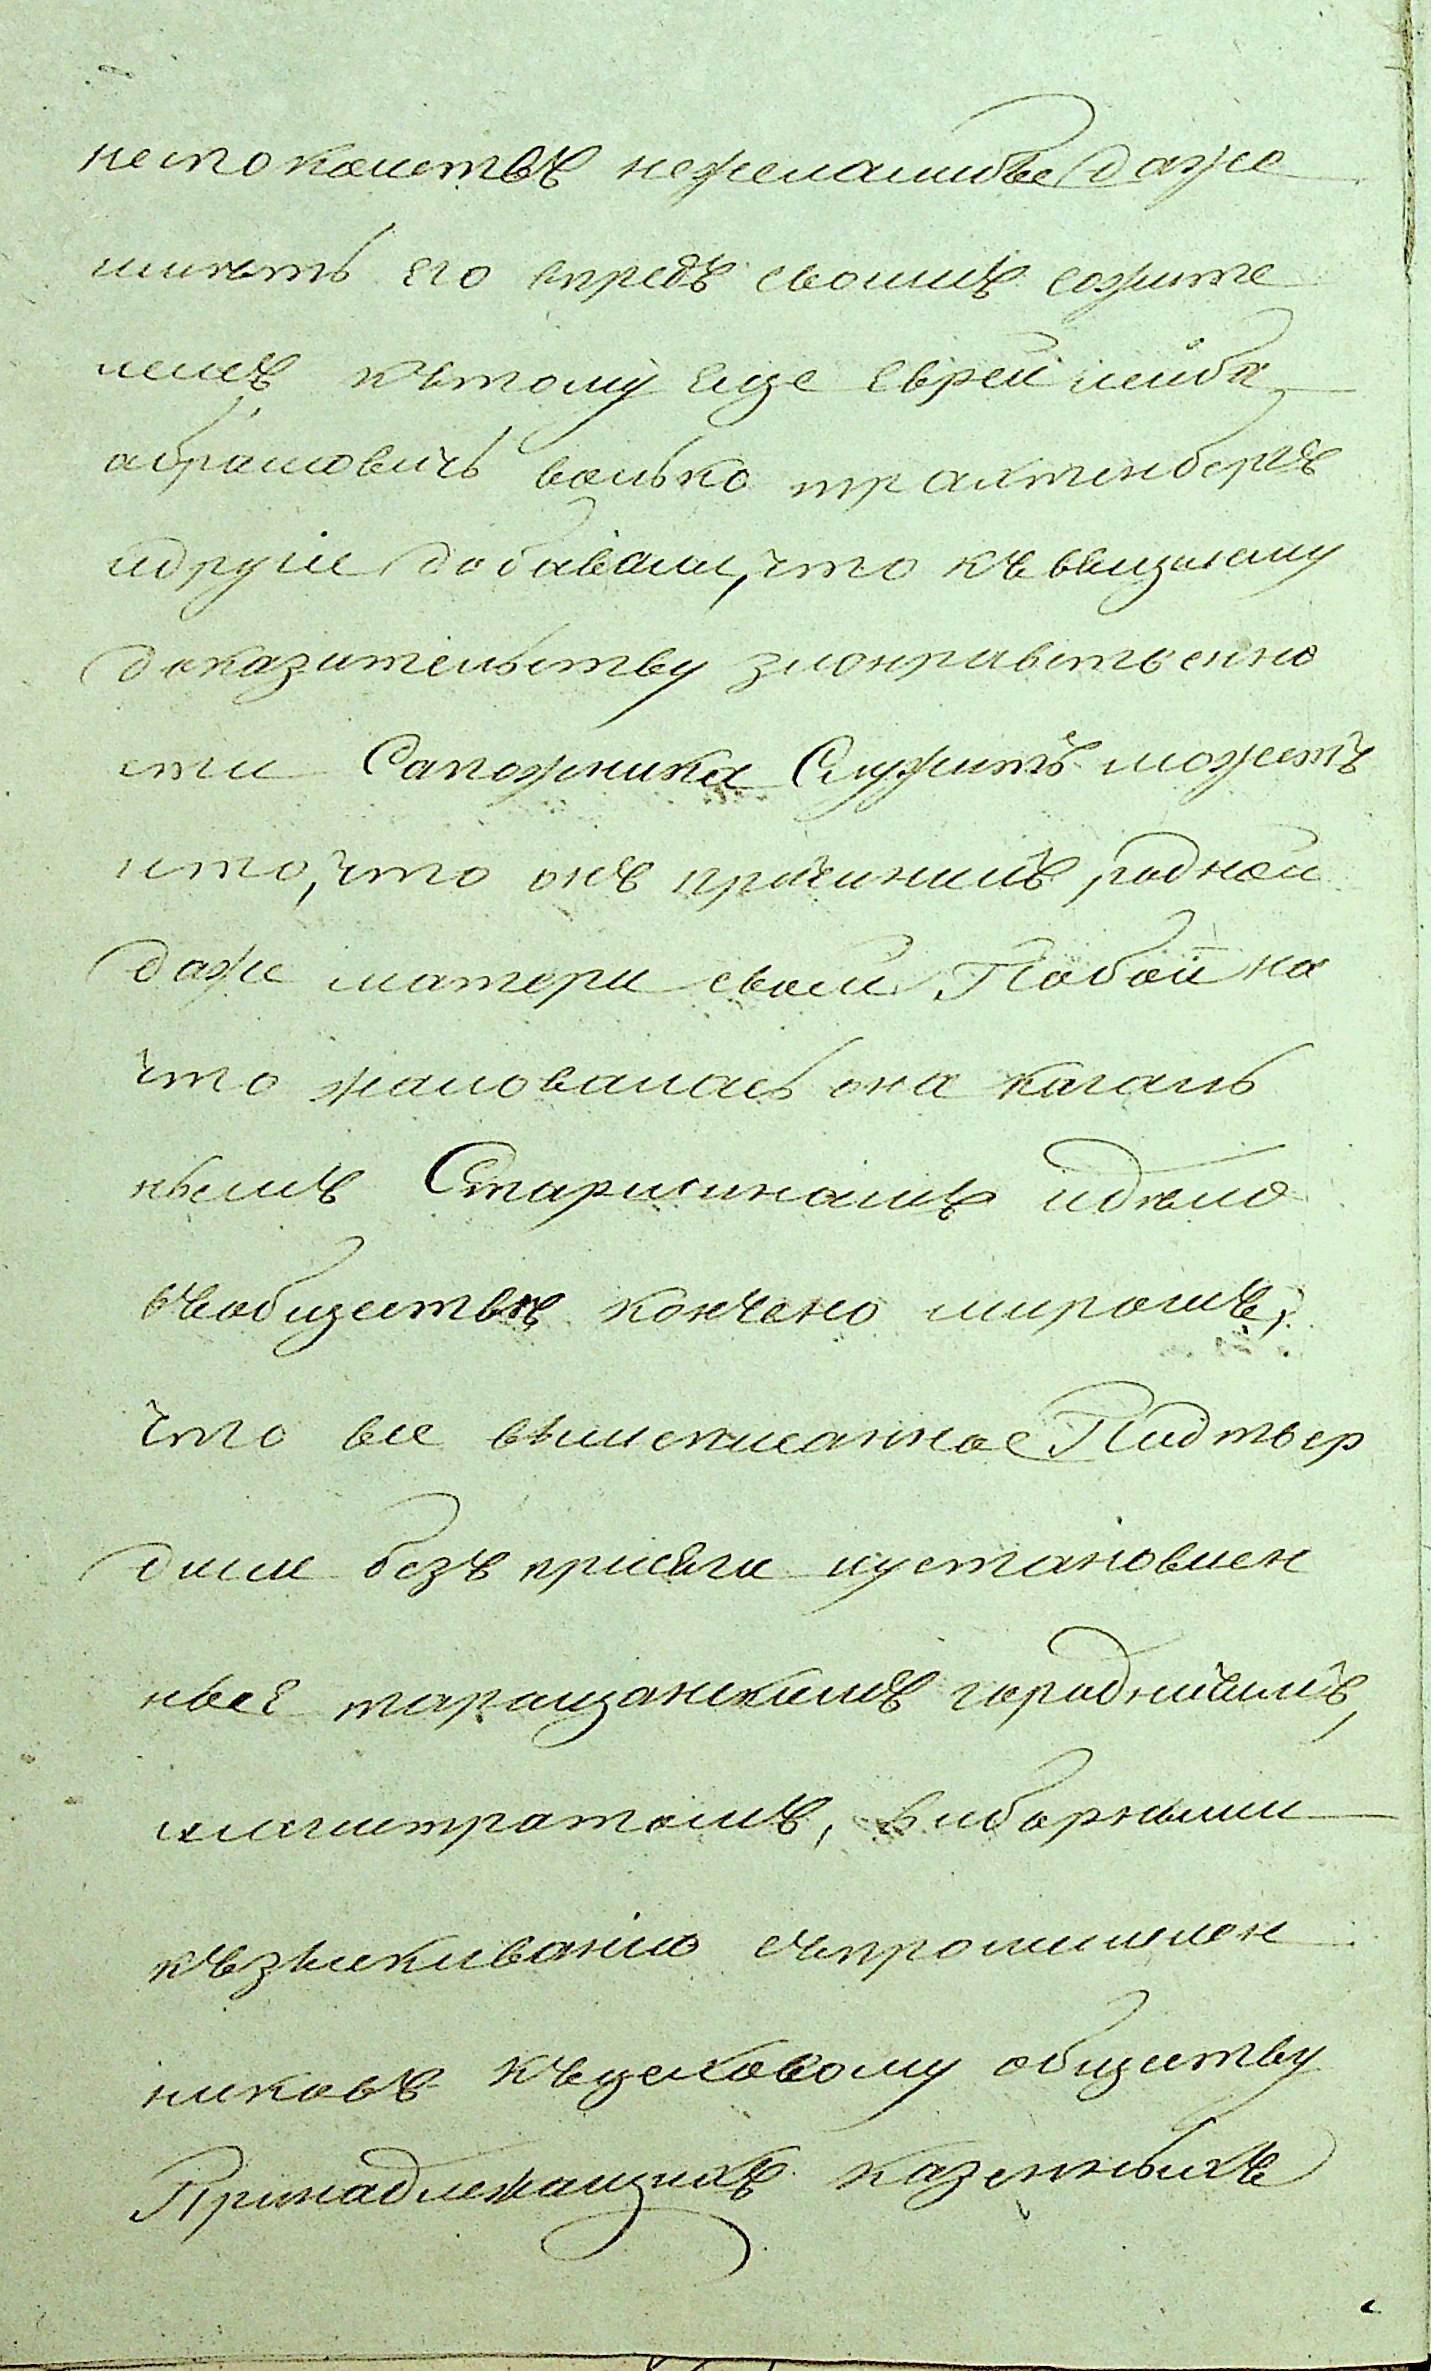 неспокойствъ нежелающые даже
имѣть его впредъ своимъ сожите
лемъ кътому еще еврей лейба
абрамовичъ волько трахтенбергъ
идругіе добавили, что къ вящшему
доказательству злонравственно
сти Сапожника Служитъ можетъ
ито, что онъ причинилъ родной
даже матери своей Побои на
что жаловалась она кагаль
нымъ Старшинамъ идѣло
въобществѣ кончено миромъ,
что все вышеписанное Пидтвер
дили безъ присяги иустановлен
ные таращанскимъ городничимъ,
имагистратомъ, виборными
къ взыскиванію съпромышлен
никовъ къцеховому обществу
Принадлежащихъ казенныхъ